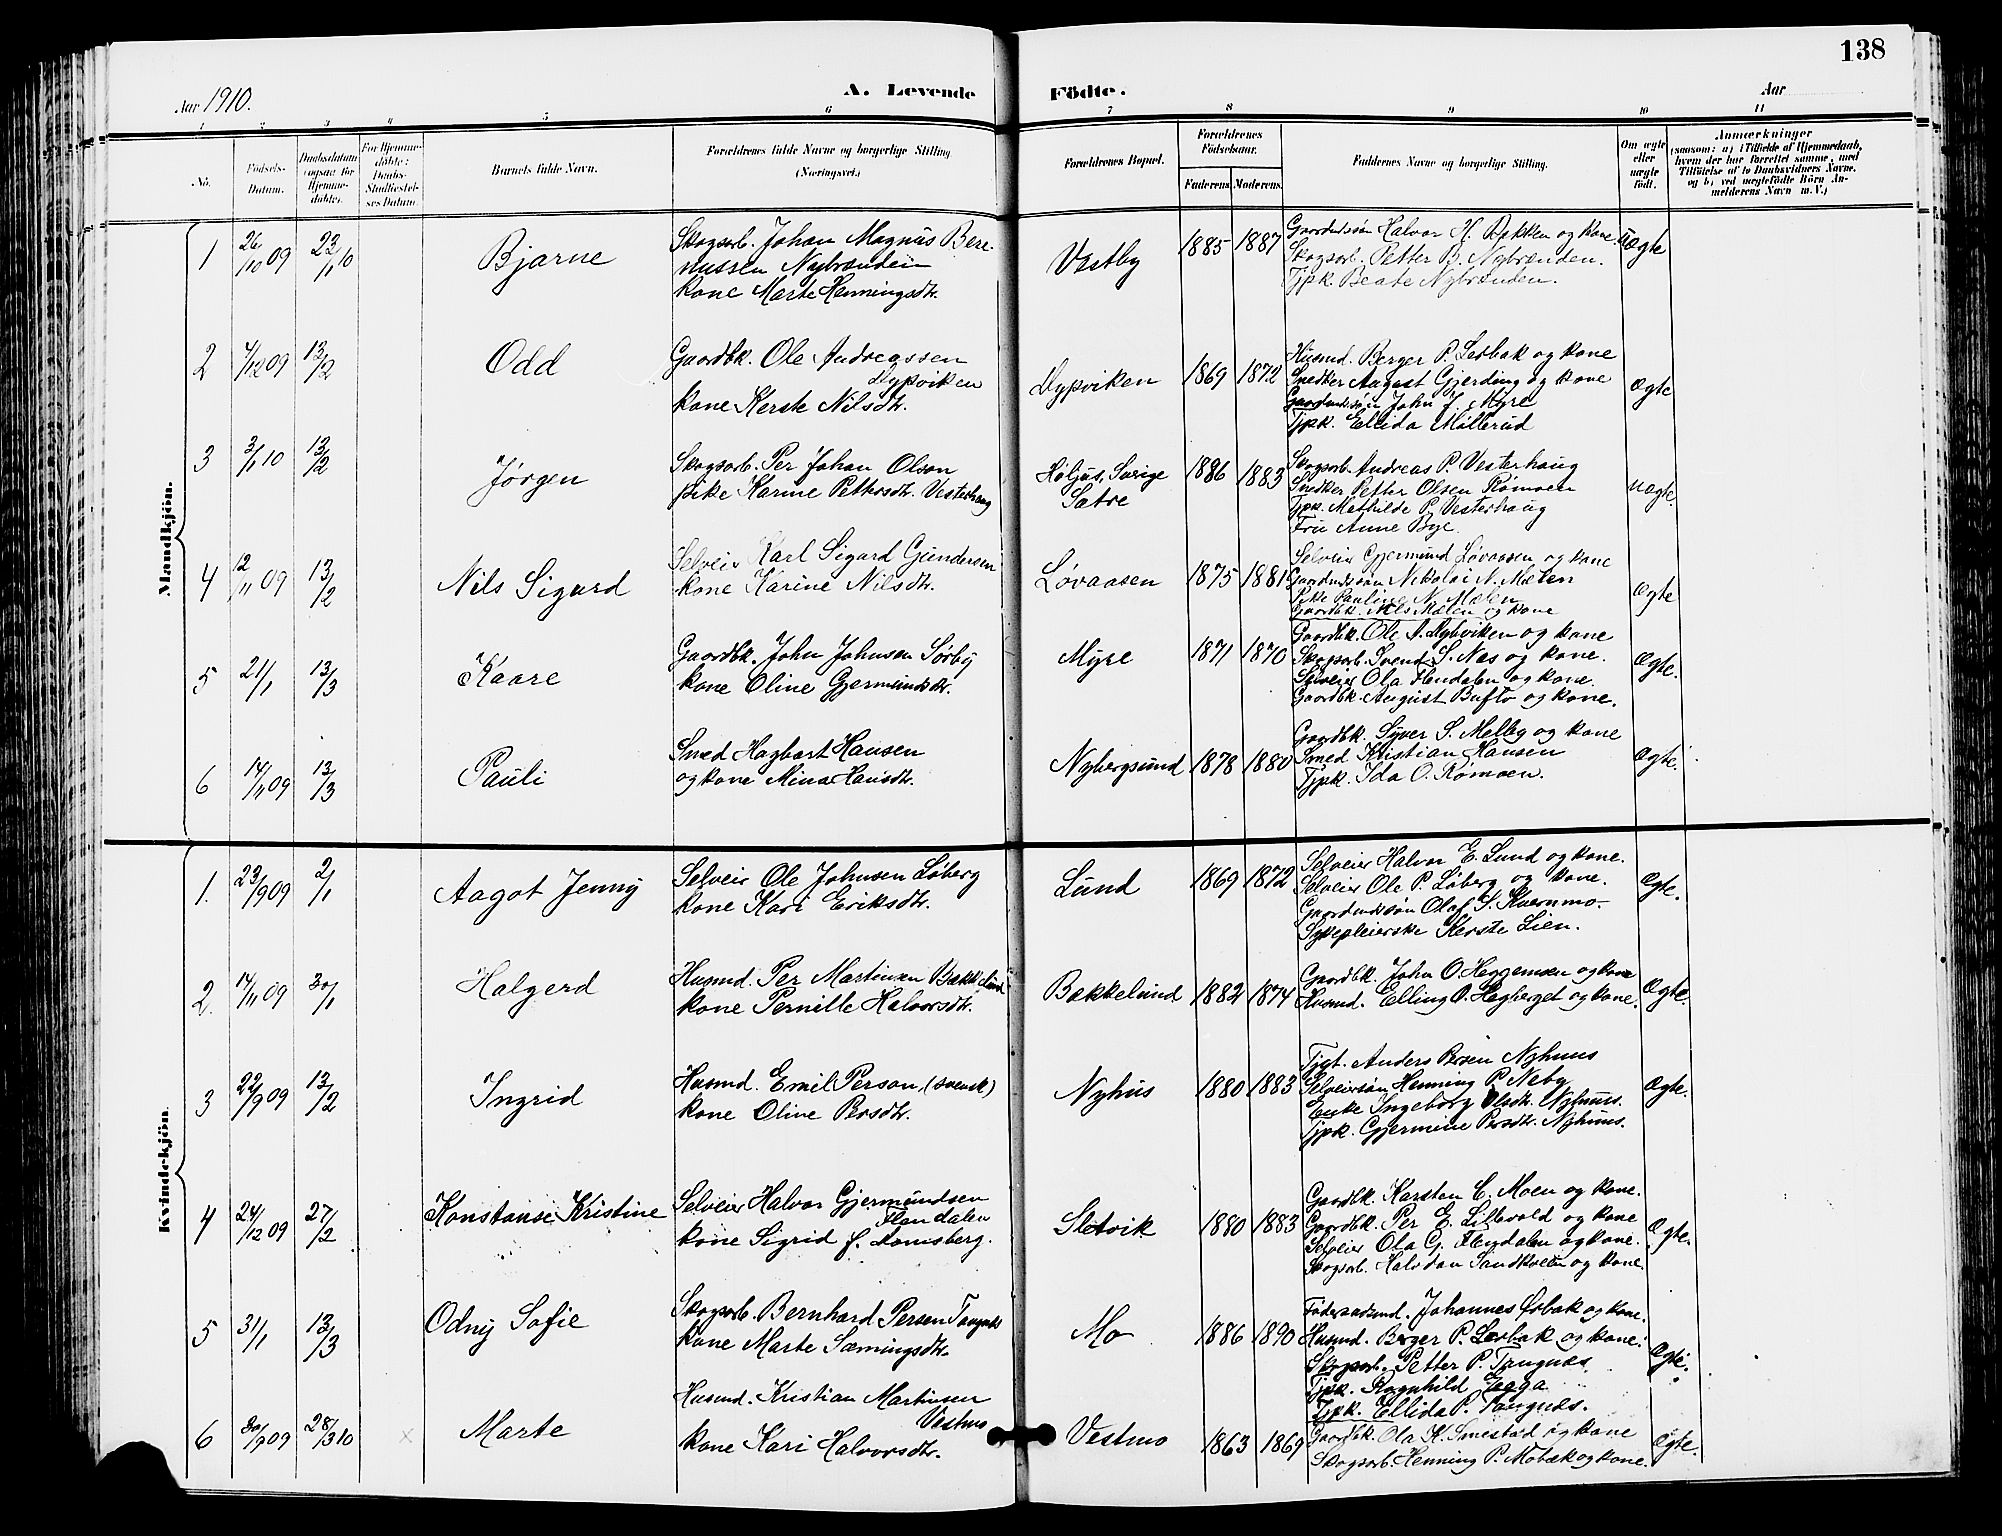 138
Aar 1910.
A. Levende Födte.
Aar
1 2 3 4 5 6 7 8 9 10 11
No.
Födsels-
Datum.
Daabsdatum
(ogsaa for
Hjemme-
døbte).
For Hjemme-
döbte:
Daabs-
Stadfæstel-
ses Datum.
Barnets fulde Navn.
Forældrenes fulde Navne og borgerlige Stilling
(Næringsvei.)
Forældrenes Bopæl.
Forældrenes
Födselsaar.
Faderens. Moderens.
Faddernes Navne og borgerlige Stilling.
Om ægte
eller
uægte
født.
Anmærkninger
(saasom: a) i Tilfælde af Hjemmedaab,
hvem der har forrettet samme, med
Tilföielse af to Daabsvidners Navne,
og b) ved uægtefödte Börn An-
melderens Navn m. V.)
Mandkjön.
1 26/10 09 23/1 10 Bjarne
Skogsarb. Johan Magnus Bere-
nussen Nybrænden
kone Marte Henningsdtr.
Vestby 1885 1887
Gaardmdssøn Halvor H. Bakken og kone.
Skogsarb. Petter B. Nybrænden.
Tjpk. Beate Nybrænden.
Ægte
2 4/12 09 13/2 Odd
Gaardbk. Ole Andreassen
Dypviken
kone Kerste Nilsdtr.
Dypviken 1869 1872
Husmd. Berger P. Lerbak og kone
Snedker August Gjerding og kone
Gaardmdssøn John J. Myre
Tjpk. Ellida Møllerud
Ægte
3 3/1 10 13/2 Jørgen
Skogsarb. Per Johan Olson
pike Karine Pettersdtr. Vesterhaug
Høljus, Sverige
Sætre
1886 1883
Skogsarb. Andreas P. Vesterhaug
Snedker Petter Olsen Rømoen
Tjpk. Mathilde P. Vesterhaug
Fru Anne Bye
uægte.
4 12/11 09 13/2 Nils Sigurd
Selveier Karl Sigard Gundersen
kone Karine Nilsdtr.
Løvaasen 1875 1881
Selveier Gjermund Løvaasen og kone
Gaardmdssøn Nikolai N. Mælen
Pike Pauline N. Mælen
Gaardbk. Nils Mælen og kone
Ægte
5 21/1 13/3 Kaare
Gaardbk. John Johnsen Sørby
kone Oline Gjermundsdtr.
Myre 1871 1870
Gaardbk. Ole A. Dypviken og kone
Skogsarb. Svend S. Næs og kone.
Selveier Ola Flendalen og kone.
Gaardbk. August Bufto og kone.
Ægte.
6 14/11 09 13/3 Pauli
Smed Hagbart Hansen
og kone Mina Hansdtr.
Nybergsund 1878 1880
Gaardbk. Syver S. Melby og kone
Smed Kristian Hansen
Tjpk. Ida O. Rømoen.
Ægte.
Kvindekjön.
1. 23/9 09 2/1 Aagot Jenny
Selveier Ole Johnsen Løberg
kone Kari Eriksdtr.
Lund 1869 1872
Selveier Halvor E. Lund og kone.
Selveier Ole P. Løberg og kone.
Gaardmdssøn Olaf S. Kværnmo.
Sykepleierske Kerste Lien.
Ægte.
2. 14/11 09 30/1 Halgerd
Husmd. Per Martinsen Bækkelund
kone Pernille Halvorsdtr.
Bækkelund 1882 1874
Gaardbk. John O. Heggemsen og kone
Husmd. Elling O. Hagberget og kone.
Ægte.
3 22/9 09 13/2 Ingrid
Husmd. Emil Person, (svensk)
kone Oline Persdtr.
Nyhus 1880 1883
Tjgt. Anders Persen Nyhuus
Selveiersøn Henning P. Neby
Enke Ingeborg Olsdtr. Nyhuus.
Tjpk. Gjermine Persdtr. Nyhuus.
Ægte.
4 24/12 09 27/2 Konstanse Kristine
Selveier Halvor Gjermundsen
Flendalen
kone Sigrid f. Lomsberg.
Sletvik 1880 1883
Gaardbk. Karsten C. Moen og kone.
Gaardbk. Per E. Lillevold og kone
Selveier Ola G. Flendalen og kone.
Skogsarb. Halvdan Sandkveen og kone.
Ægte.
5 31/1 13/3 Odny Sofie
Skogsarb. Bernhard Persen Tangnæs
kone Marte Sæmingsdtr.
Mo 1886 1890
Føderaadsmd. Johannes Ørbak og kone.
Husmd. Berger P. Lerbak og kone.
Skogsarb. Petter P. Tangnæs.
Tjpk. Ragnhild Egga
Tjpk. Ellida P. Tangnæs.
Ægte.
6 30/9 09 28/3 10 × Marte
Husmd. Kristian Martinsen
Vestmo
kone Kari Halvorsdtr.
Vestmo 1863 1869
Gaardbk. Ola K. Smestad og kone
Skogsarb. Henning P. Mobæk og kone.
Ægte.